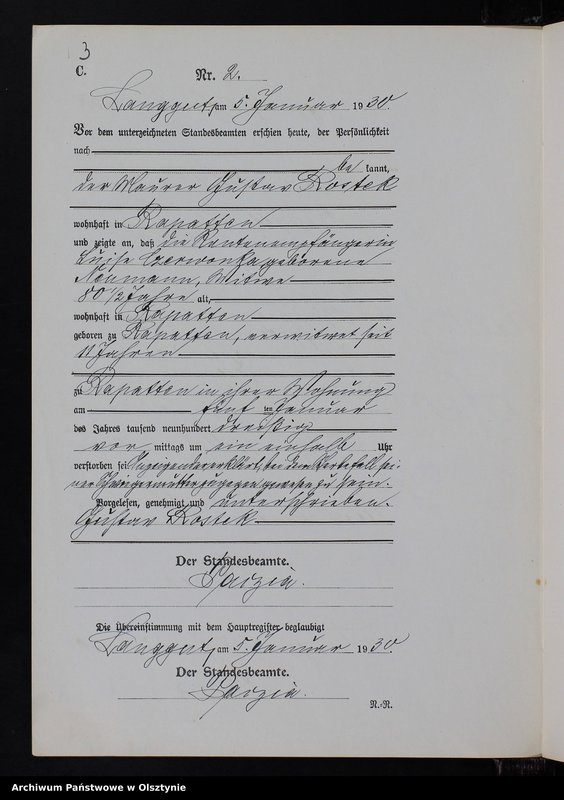 3
C.
Nr. 2.
Langgut, am 5. Januar 1930.
Vor dem unterzeichneten Standesbeamten erschien heute, der Persönlichkeit
nach
be kannt,
der Maurer Gustav Rostek
wohnhaft in Rapatten
und zeigte an, daß die Rentenempfängerin
Luise Czerwonka geborene
Neumann, Witwe
80 1/2 Jahre alt,
wohnhaft in Rapatten
geboren zu Rapatten, verwitwet seit
11 Jahren
zu Rapatten in ihrer Wohnung
am fünf ten Januar
des Jahres tausend neunhundert dreißig
vor mittags um ein einhalb Uhr
verstorben sei. Anzeigender erklärt, bei dem Sterbefall sei-
ner Schwiegermutter zugegen gewesen zu sein.
Vorgelesen, genehmigt und unterschrieben.
Gustav Rostek
Der Standesbeamte.
Die Übereinstimmung mit dem Hauptregister beglaubigt
Langgut, am 5. Januar 1930.
Der Standesbeamte.
N.-R.
Archiwum Państwowe w Olsztynie